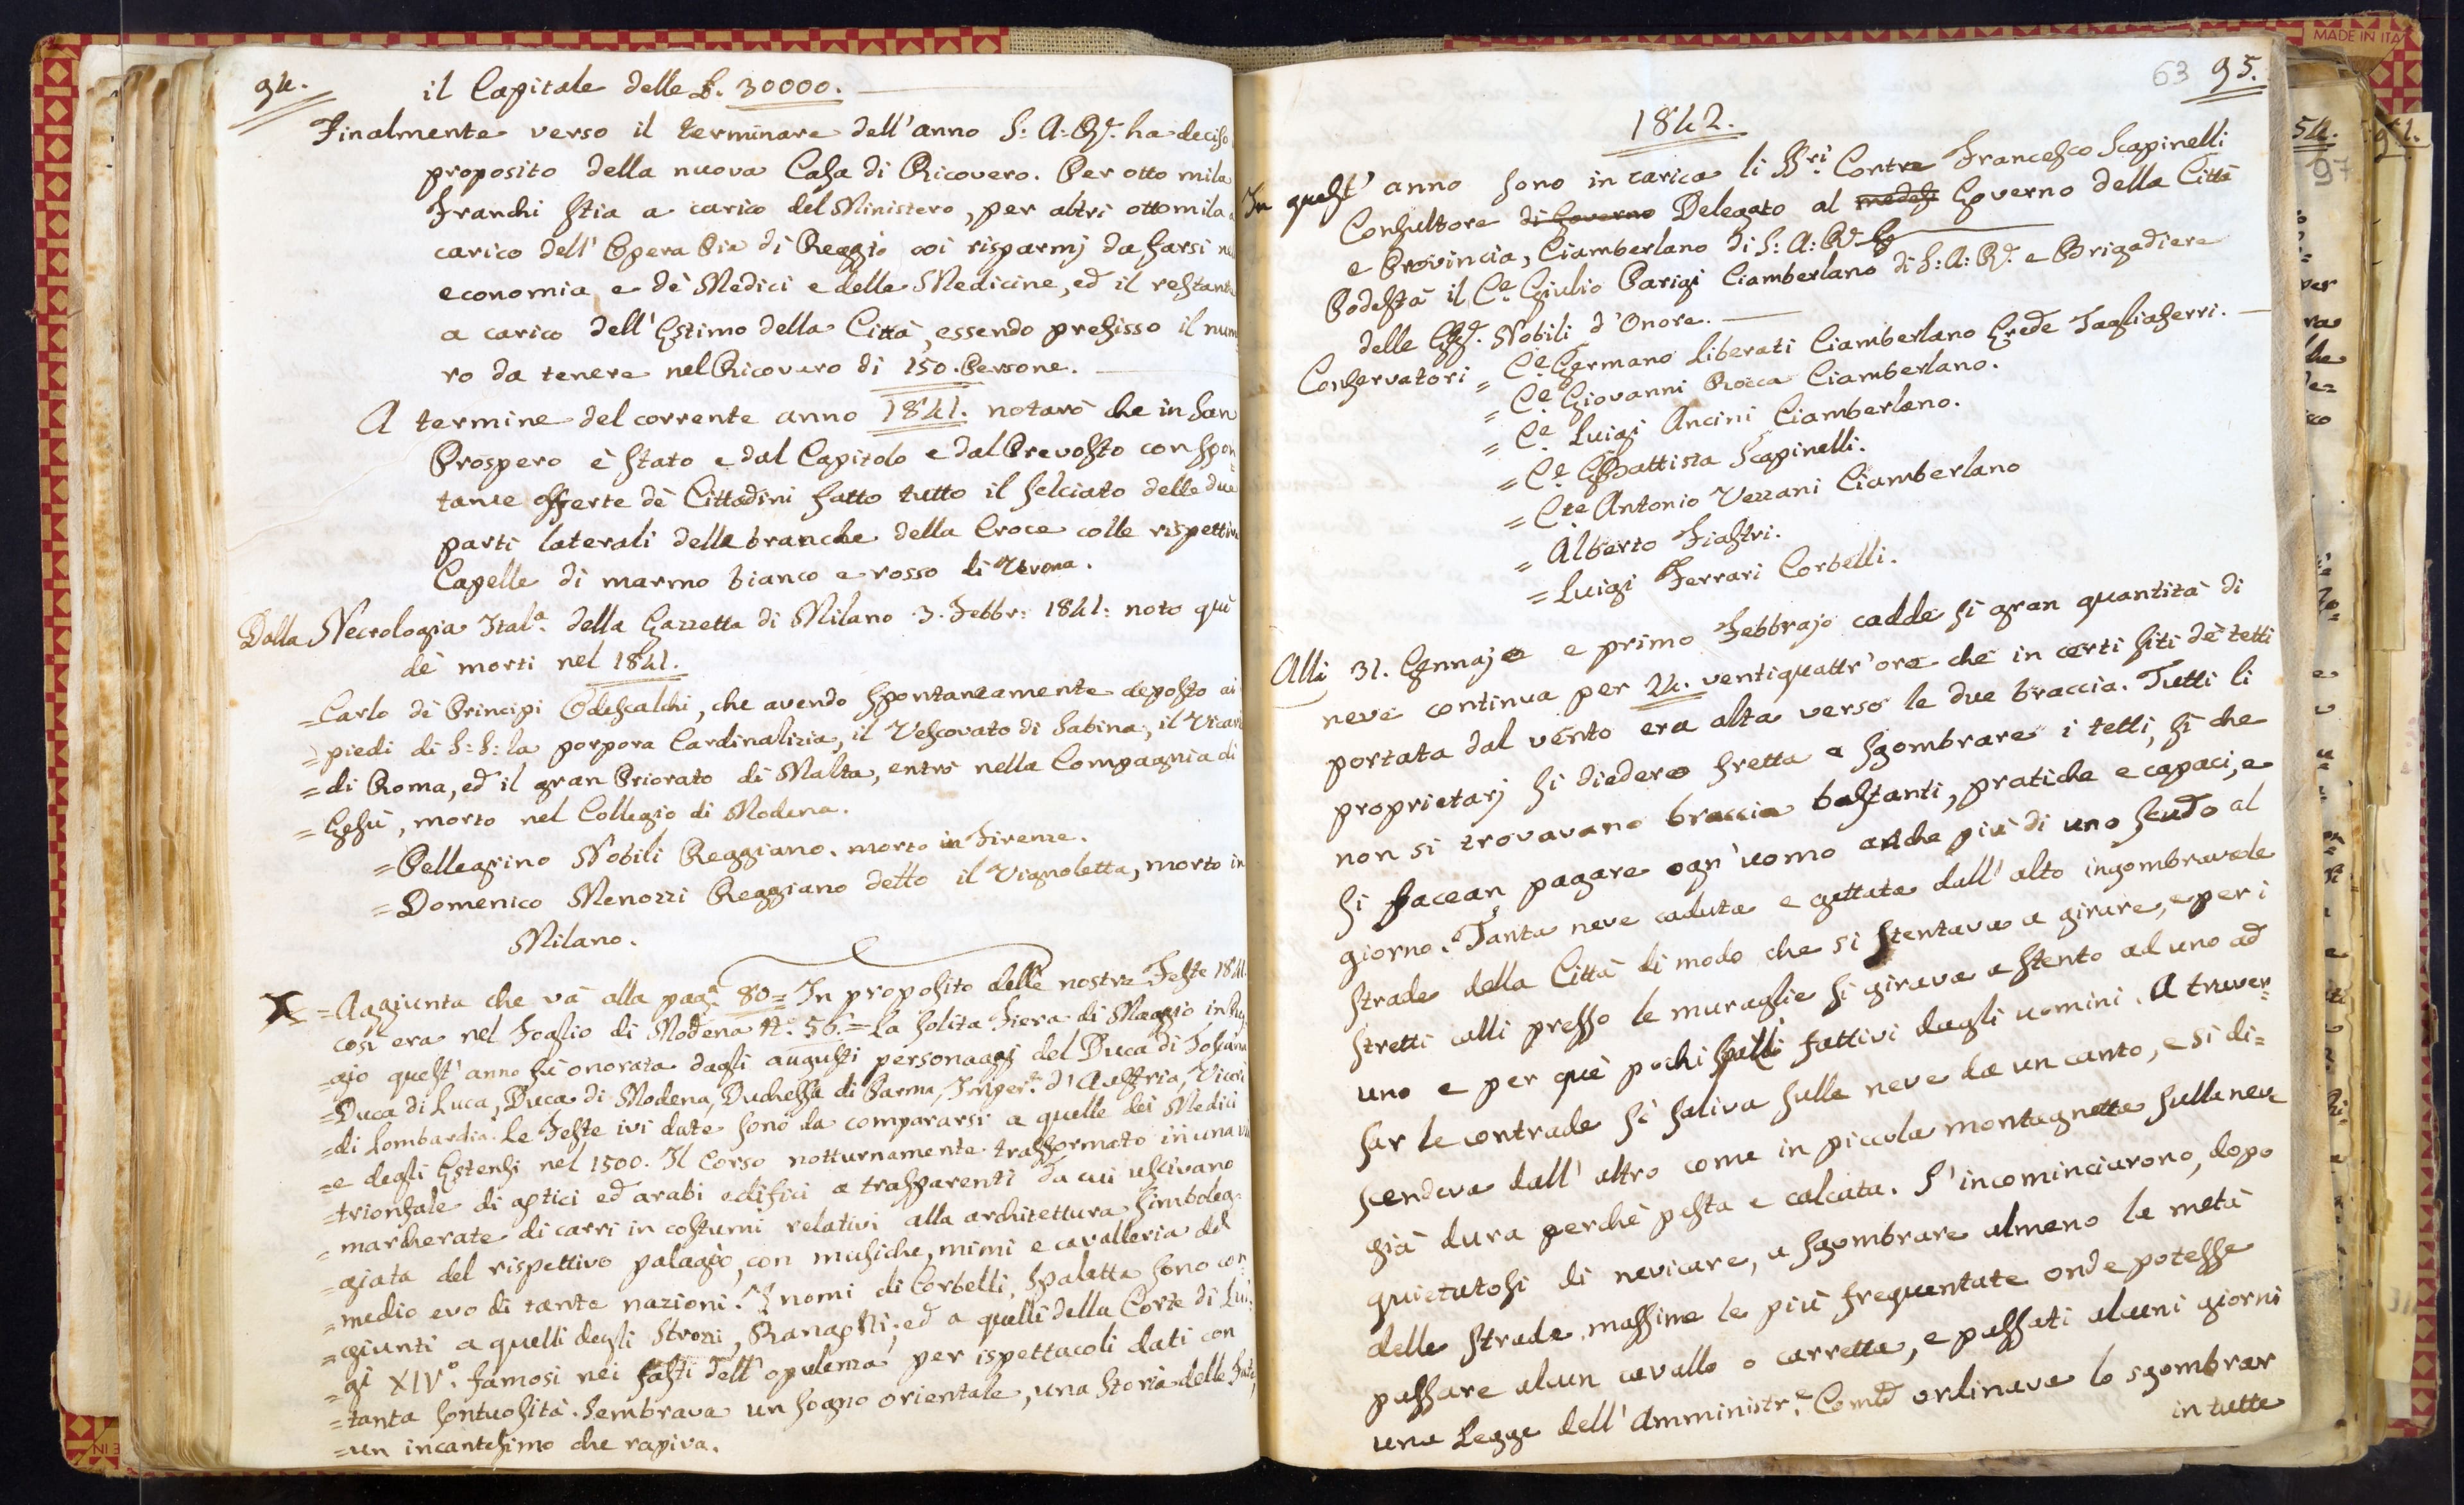 94.
il Capitale delle L. 30000.
Finalmente verso il terminare dell'anno S: A: R. ha deciso
proposito della nuova Casa di Ricovero. Per otto mila
Franchi stia a carico del Ministero, per altri ottomila a
carico dell'Opera Pia di Reggio coi risparmj da farsi nel
economia e dè Medici e delle Medicine, ed il restante
a carico dell'Estimo della Città, essendo prefisso il nume
ro da tenere nel Ricovero di 150. Persone.
A termine del corrente anno 1841. notarò che in San
Prospero è stato e dal Capitolo e dal Prevosto con spon=
tanee offerte dè Cittadini fatto tutto il selciato delle due
parti laterali delle branche della Croce colle rispettive
Capelle di marmo bianco e rosso di Verona.
Dalla Necrologia Ital.ª della Gazzetta di Milano 3. Febbr: 1841: noto quì
dè morti nel 1841.
=Carlo dè Principi Odescalchi, che avendo spontaneamente deposto ai
=piedi di S: S: la porpora Cardinalizia, il Vescovato di Sabina, il Vicari
=di Roma, ed il gran Priorato di Malta, entrò nella Compagnia di
=Gesù, morto nel Collegio di Modena.
=Pellegrino Nobili Reggiano. morto in Firenze.
=Domenico Menozzi Reggiano detto il Vignoletta, morto in
Milano.
X =Aggiunta che và alla pag.ª 80= In proposito delle nostre Feste 1841
così era nel Foglio di Modena N.° 56.= La solita Fiera di Maggio in Reg
=gio quest'anno fù onorata dagli augusti personaggi del Duca di Toscana
=Duca di Luca, Duca di Modena, Duchessa di Parma, Imper.ᵉ d'Austria, Vicerè
=di Lombardia. Le Feste ivi date sono da compararsi a quelle dei Medici
=e degli Estensi nel 1500. Il Corso notturnamente trasformato in una via
=trionfale di agtici ed arabi edifici a trasparenti da cui uscivano
=marcherate di carri in costumi relativi alla architettura simboleg=
=giata del rispettivo palagio, con musiche, mimi e cavalleria del
=medio evo di tante nazioni. I nomi di Corbelli, Spaletta sono con
=giunti a quelli degli Strozzi, ed a quelli della Corte di Lui=
=gi XIV.° famosi nei fasti dell'opulenza per ispettacoli dati con
=tanta sontuosità. Sembrava un sogno orientale, una storia delle Fate,
=un incantesimo che rapiva.
63 95.
1842.
In quest'anno sono in carica li SS.ri Contre Francesco Scapinelli
Consultore di Governo Delegato al medes Governo della Città
e Provincia, Ciamberlano di S: A: R.
Podestà il C.e Giulio Parigi Ciamberlano di S: A: R. e Brigadiere
delle GG.d. Nobili d'Onore.
Conservatori = C.e Germano Liberati Ciamberlano Erede Tagliaferri.
= C.e Giovanni Rocca Ciamberlano.
= C.e Luigi Ancini Ciamberlano.
= C.e GBattista Scapinelli.
= C.te Antonio Vezzani Ciamberlano
= Alberto Fiastri.
= Luigi Ferrari Corbelli.
Alli 31. Gennajo e primo Febbrajo cadde sì gran quantità di
neve continua per 24. ventiquattr'ore che in certi siti dè tetti
portata dal vento era alta verso le due braccia. Tutti li
proprietarj si diedero fretta a sgombrare i tetti, sì che
non si trovavano braccia bastanti, pratiche e capaci, e
si facean pagare ogn'uomo anche più di uno scudo al
giorno. Tanta neve caduta e gettata dall'alto ingombrava le
strade della Città di modo che si stentava a girare, e per i
stretti calli presso le muraglie si girava a stento ad uno ad
uno e per què pochi spalli fattivi dagli uomini. A traver=
sar le contrade si saliva sulla neve da un canto, e si di=
scendeva dall'altro come in piccola montagnetta sulla neve
già dura perchè pesta e calcata. S'incominciarono, dopo
quietatosi di nevicare, a sgombrare almeno la metà
delle strade, massime le più frequentate onde potesse
passare alcun cavallo o carretta, e passati alcuni giorni
una Legge dell'Amministr.e Com.e ordinava lo sgombrar
in tutte
54.
97
MADE IN ITA